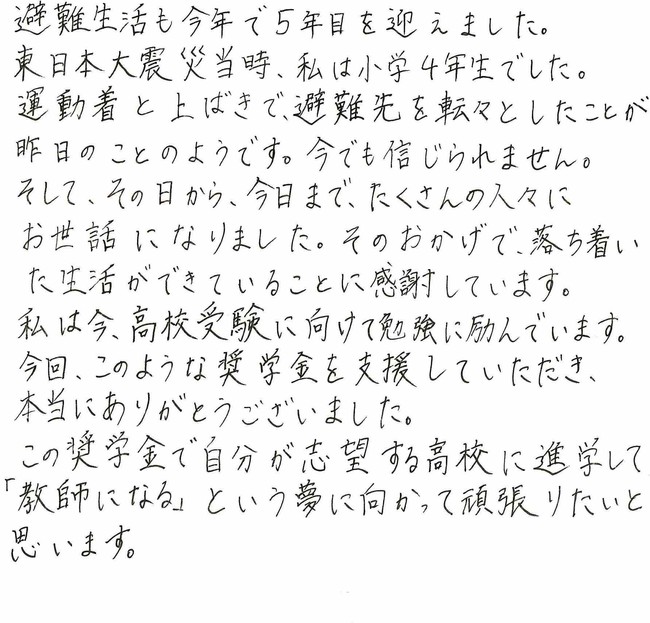 避難生活も今年で5年目を迎えました。
東日本大震災当時、私は小学4年生でした。
運動着と上ばきで、避難先を転々としたことが
昨日のことのようです。今でも信じられません。
そして、その日から、今日まで、たくさんの人々に
お世話になりました。そのおかげで、落ち着い
た生活ができていることに感謝しています。
私は今、高校受験に向けて勉強に励んでいます。
今回、このような奨学金を支援していただき、
本当にありがとうございました。
この奨学金で自分が志望する高校に進学して
「教師になる」という夢に向かって頑張りたいと
思います。